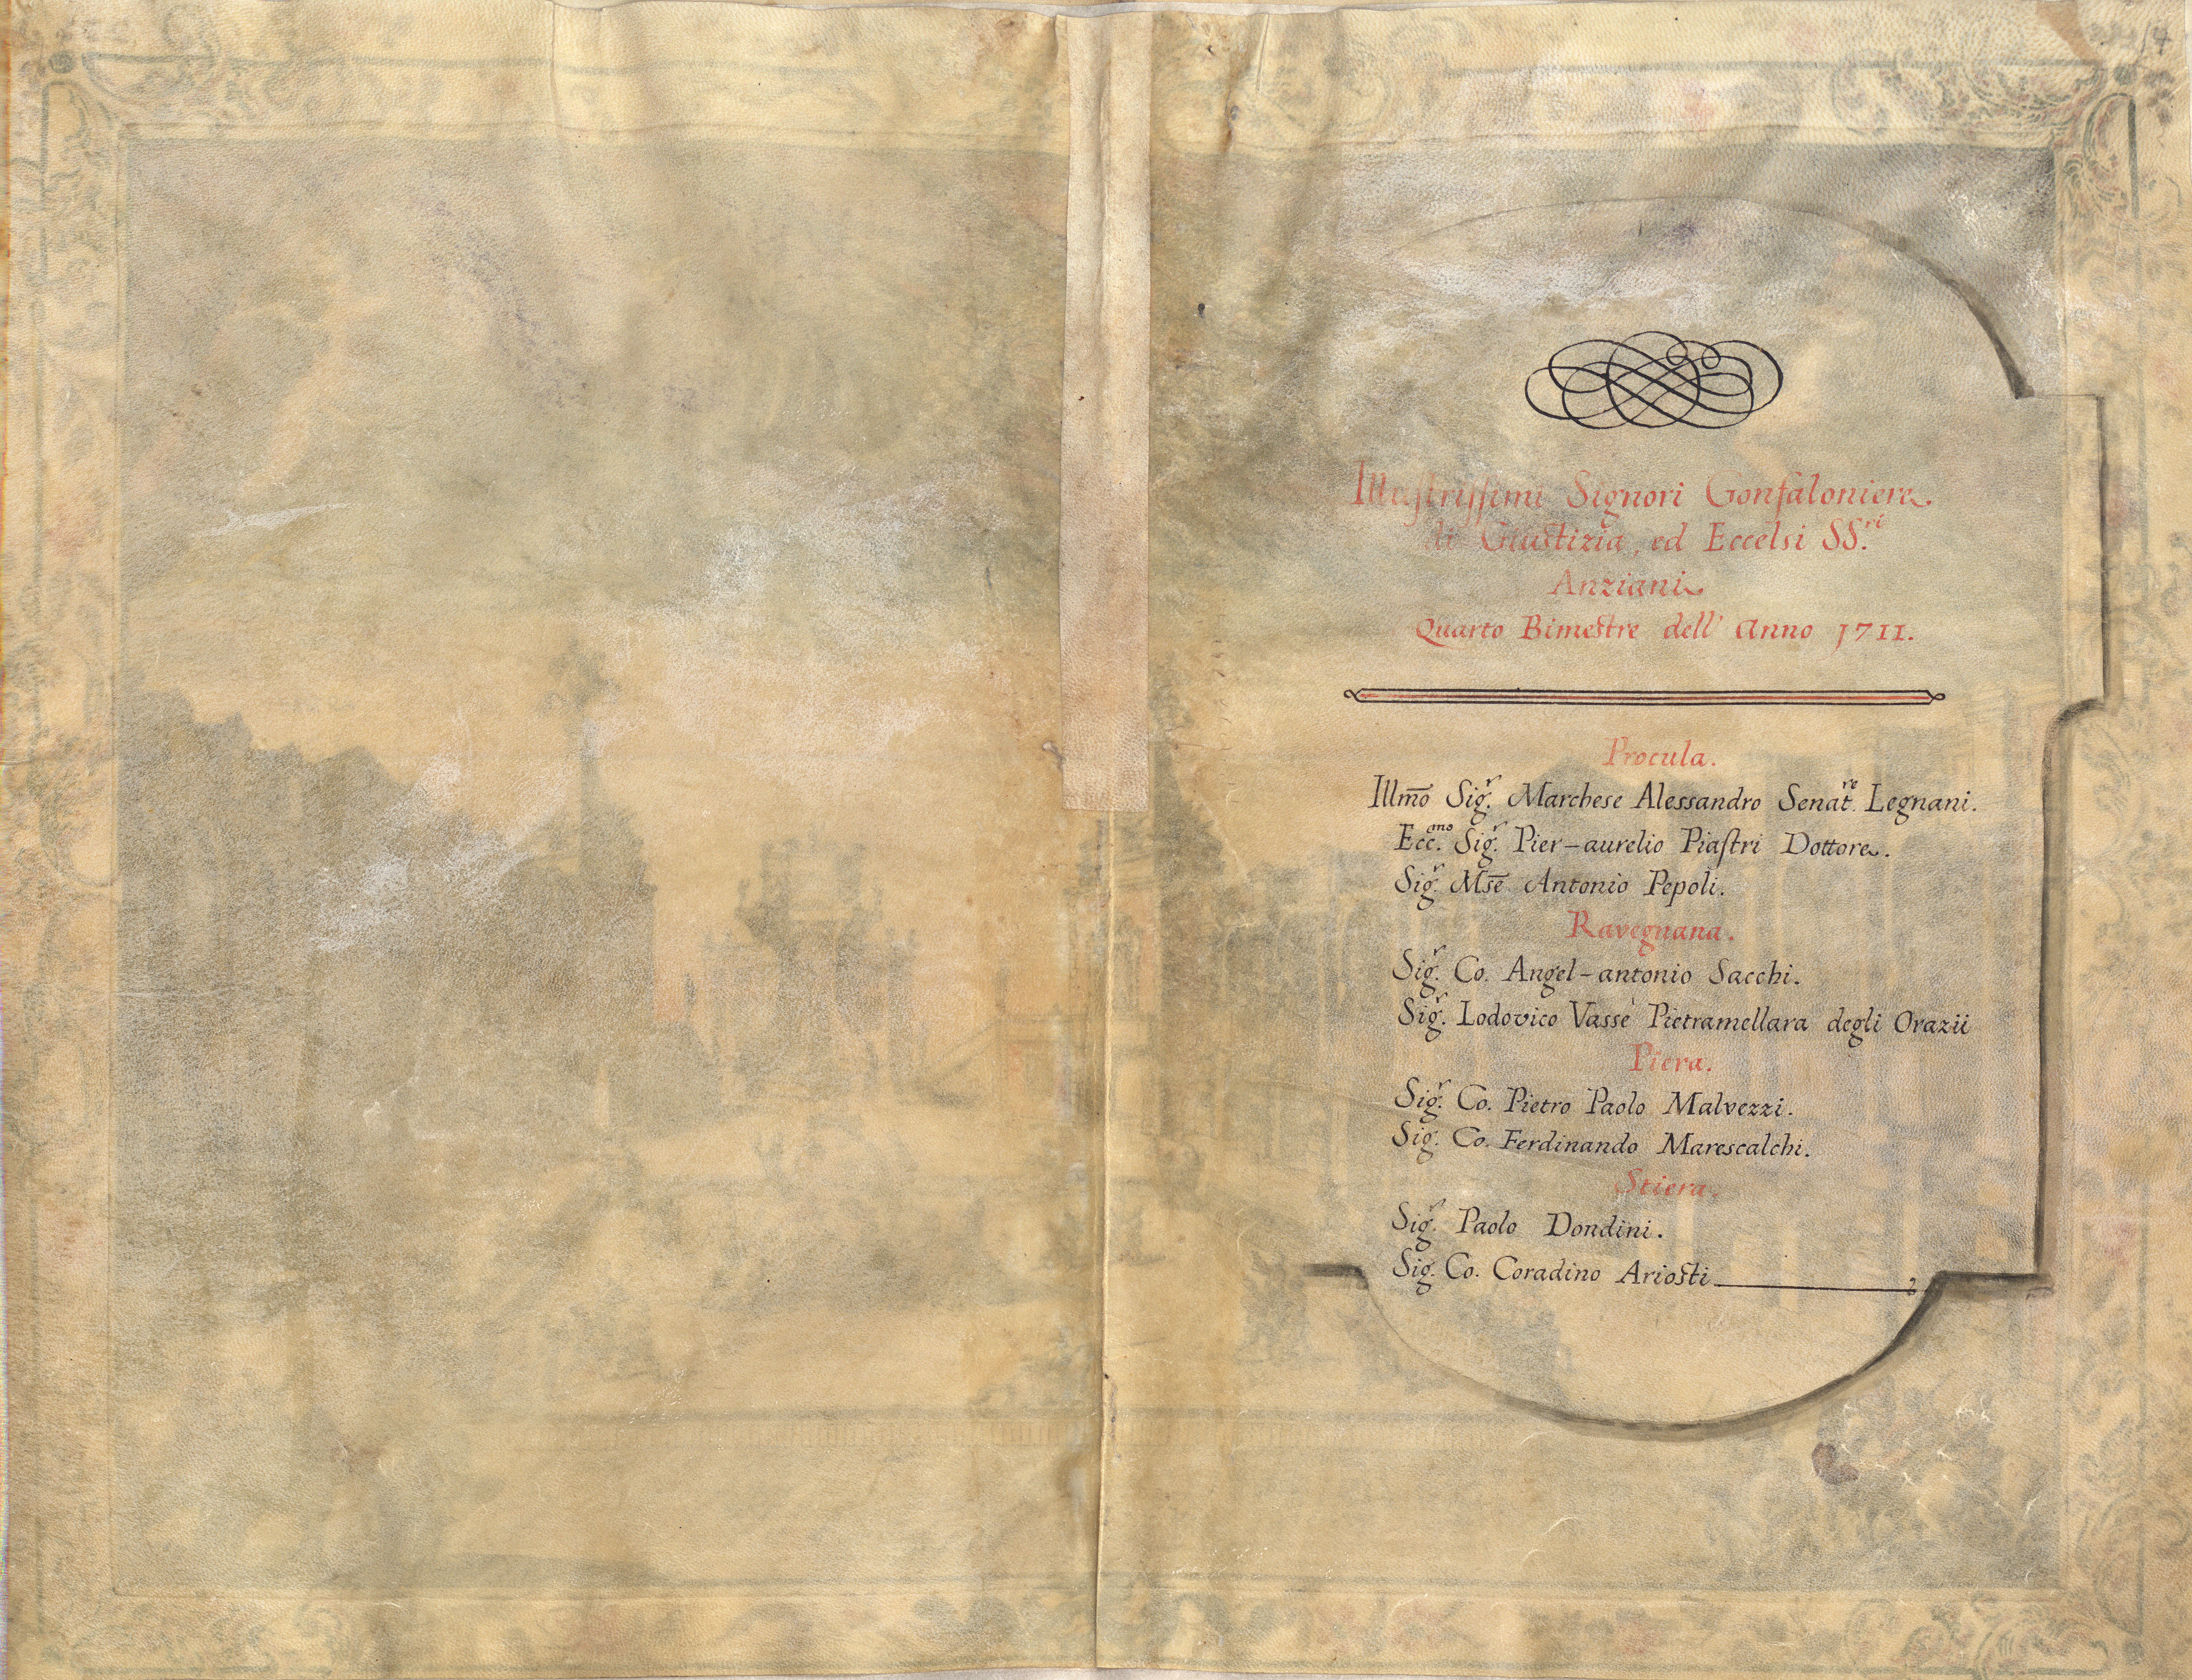 Illustrissimi Signori Gonfaloniere
di Giustizia, ed Eccelsi SS.ri
Anziani
Quarto Bimestre dell' Anno 1711.
Procula.
Illmo Sig.r Marchese Alessandro Senat.re Legnani.
Ecc.mo Sig.r Pier-aurelio Piastri Dottore.
Sig.r Mse Antonio Pepoli.
Ravegnana.
Sig.r Co. Angel-antonio Sacchi.
Sig.r Lodovico Vassè Pietramellara degli Orazii
Piera.
Sig.r Co. Pietro Paolo Malvezzi.
Sig.r Co. Ferdinando Marescalchi.
Stiera.
Sig.r Paolo Dondini.
Sig.r Co. Coradino Ariosti